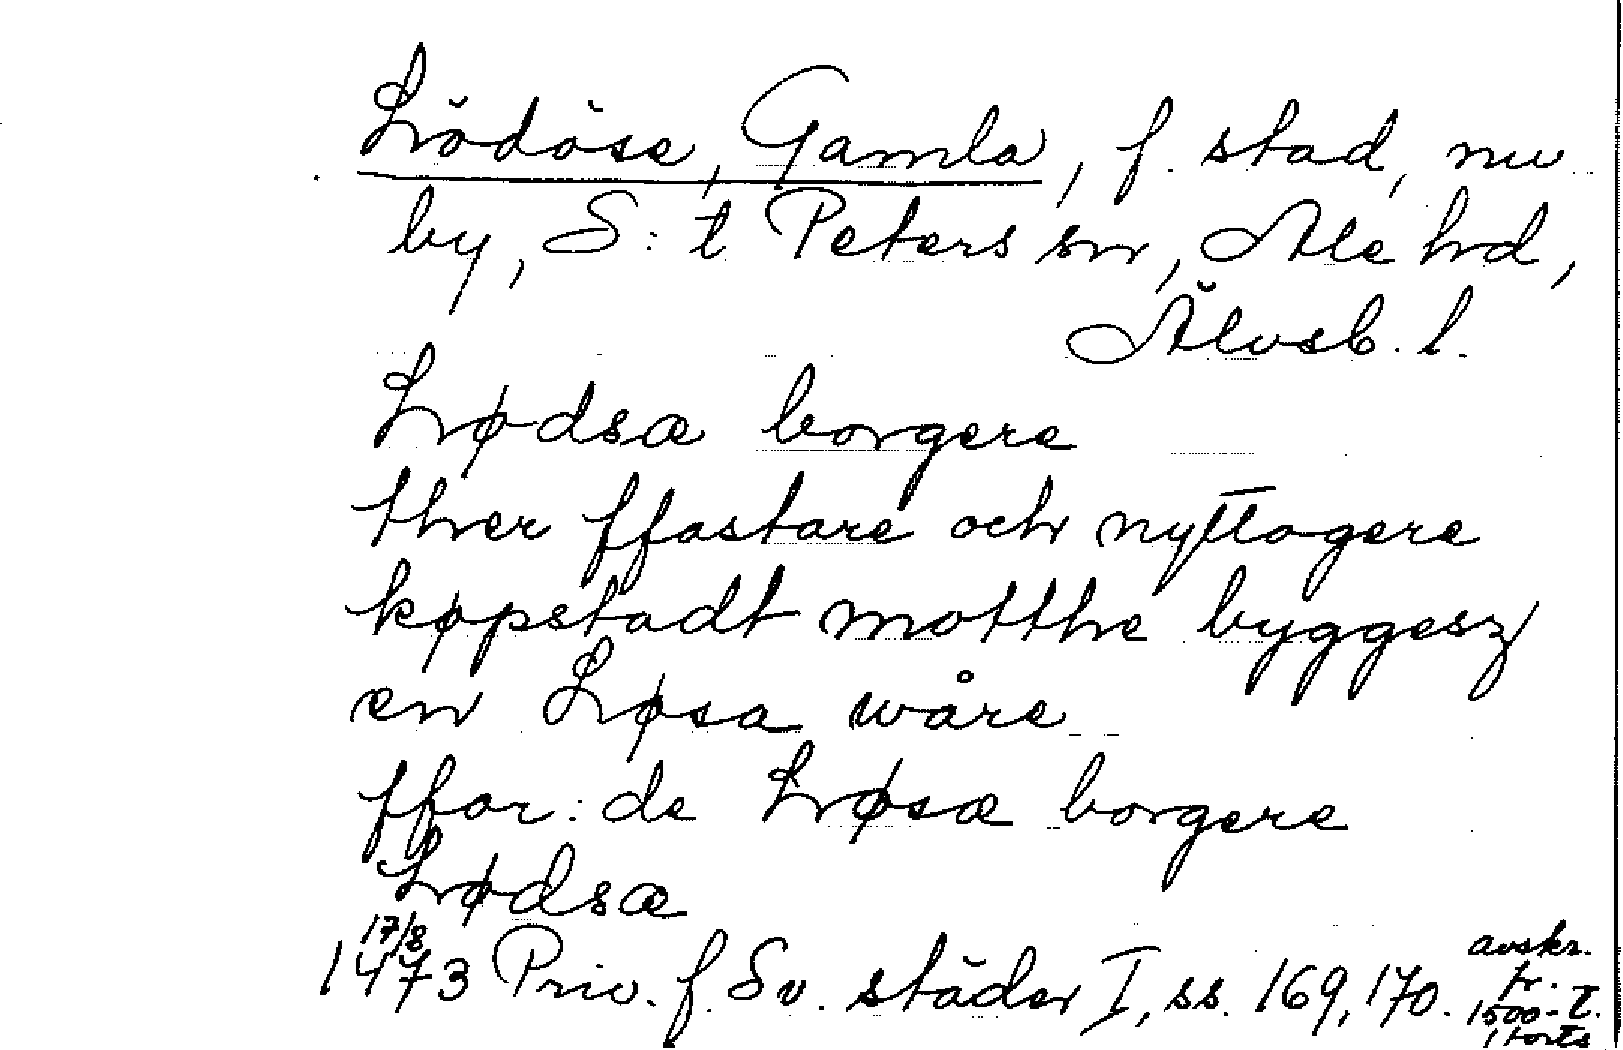 Lödöse, Gamla, f. stad, nu
by, S:t Peters sn, Ale hd,
Älvsb. l.
Lødsæ borgere
ther ffastare och nyttogere
køpstadt motthe byggesz
æn Løsa wåre
ffor: de Løsæ borgere
Lødsæ
17/8
1473 Priv. f. Sv. städer I, ss. 169, 170.
avskr.
fr.
1500-t.